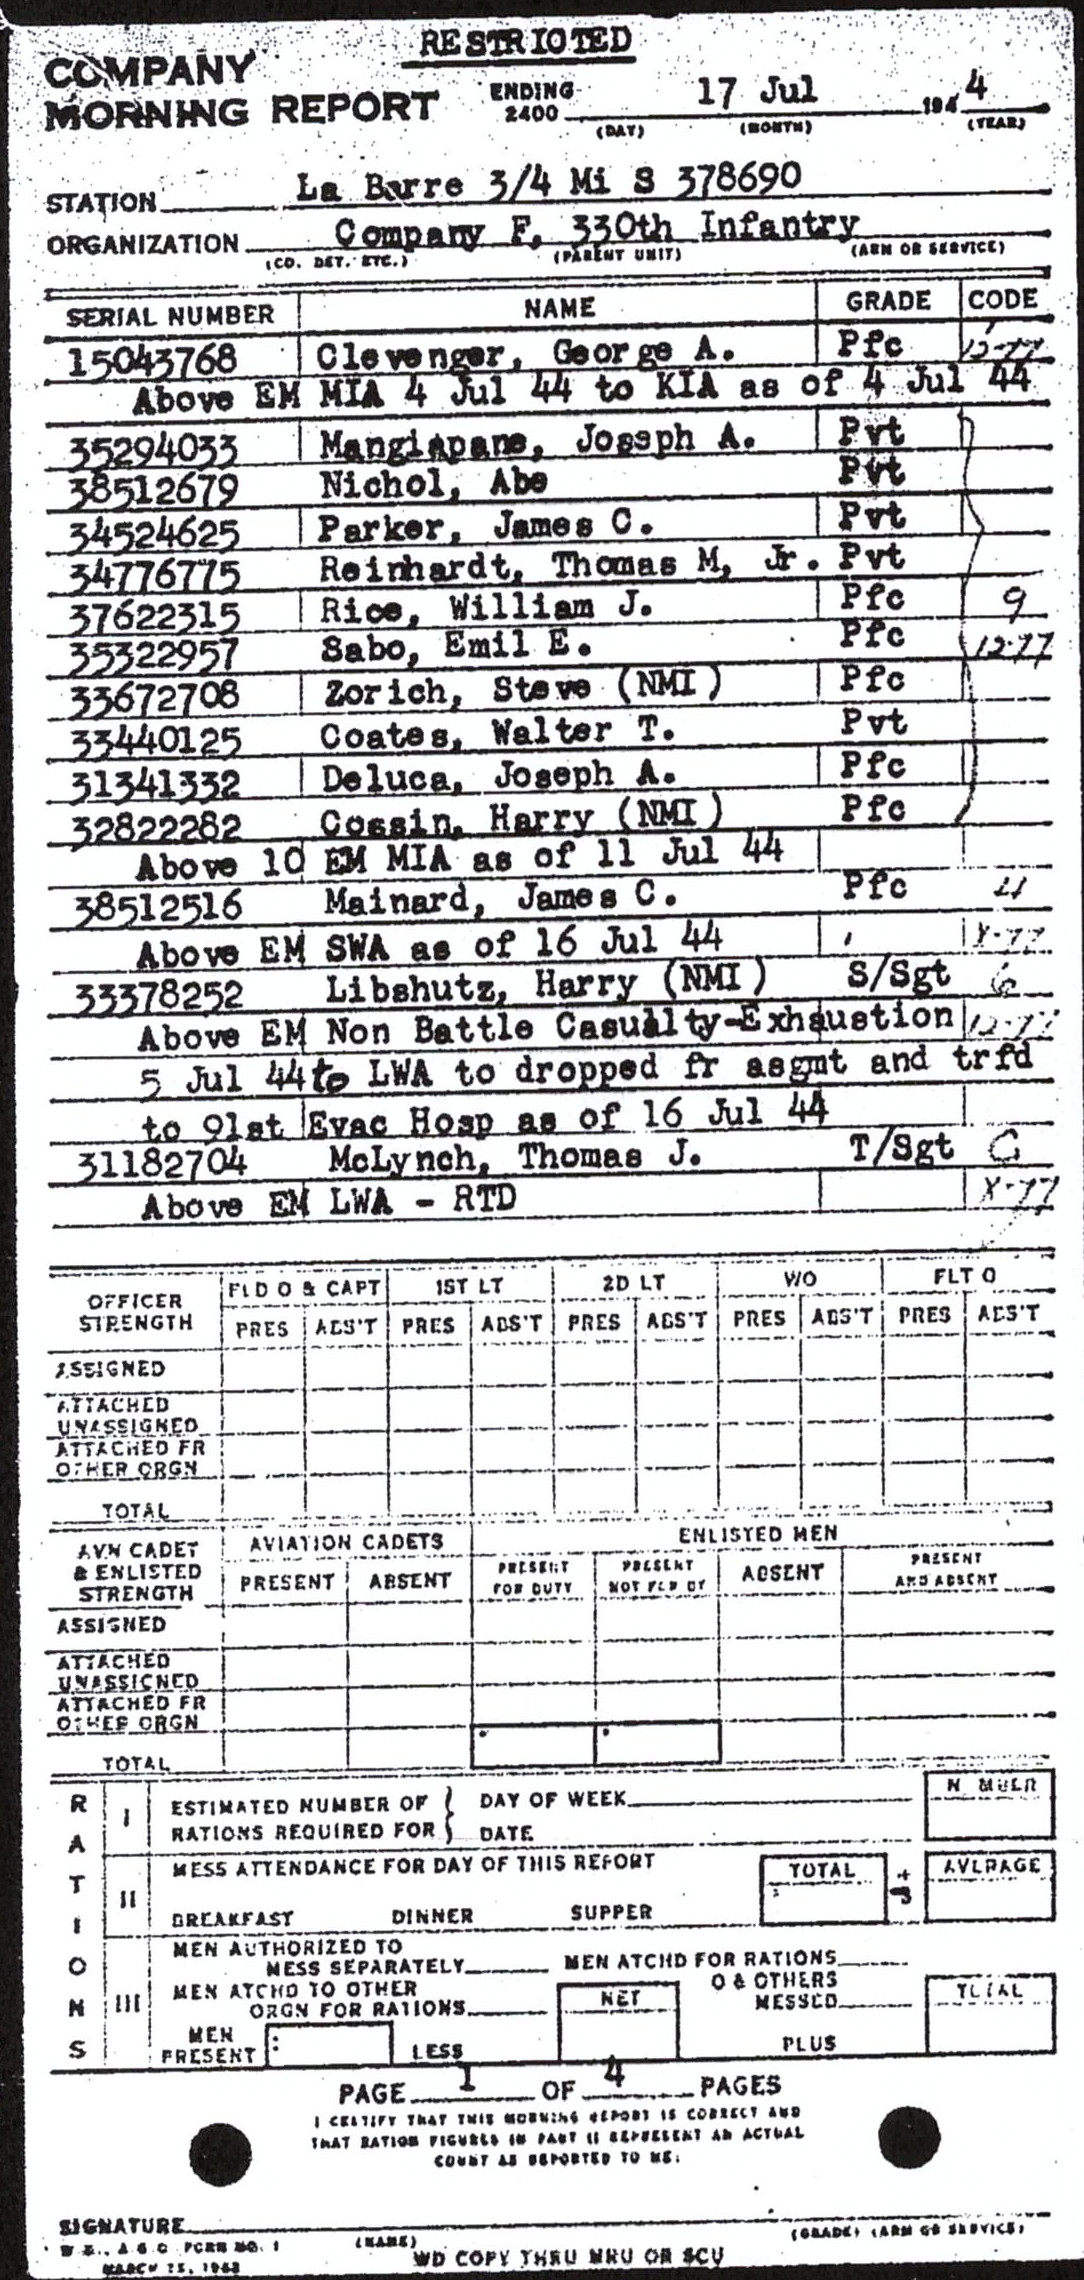 RESTRICTED
COMPANY
MORNING REPORT
ENDING 2400 17 Jul 1944
(DAY) (MONTH) (YEAR)
STATION La Barre 3/4 Mi S 378690
ORGANIZATION Company F, 330th Infantry
(CO. DET. ETC.) (PARENT UNIT) (ARM OR SERVICE)
SERIAL NUMBER NAME GRADE CODE
15043768 Clevenger, George A. Pfc 12-77
Above EM MIA 4 Jul 44 to KIA as of 4 Jul 44
35294033 Mangiapane, Joseph A. Pvt
38512679 Nichol, Abe Pvt
34524625 Parker, James C. Pvt
34776775 Reinhardt, Thomas M, Jr. Pvt
37622315 Rice, William J. Pfc 9
35322957 Sabo, Emil E. Pfc 12-77
33672708 Zorich, Steve (NMI) Pfc
33440125 Coates, Walter T. Pvt
31341332 Deluca, Joseph A. Pfc
32822282 Cossin, Harry (NMI) Pfc
Above 10 EM MIA as of 11 Jul 44
38512516 Mainard, James C. Pfc
Above EM SWA as of 16 Jul 44 X-77
33378252 Libshutz, Harry (NMI) S/Sgt 6
Above EM Non Battle Casualty-Exhaustion 12-77
5 Jul 44 to LWA to dropped fr asgmt and trfd
to 91st Evac Hosp as of 16 Jul 44
31182704 McLynch, Thomas J. T/Sgt
Above EM LWA - RTD X-77
OFFICER STRENGTH FLD O & CAPT 1ST LT 2D LT WO FLT O
PRES ABS'T PRES ABS'T PRES ABS'T PRES ABS'T PRES ABS'T
ASSIGNED
ATTACHED UNASSIGNED
ATTACHED FR OTHER ORGN
TOTAL
AVN CADET & ENLISTED STRENGTH AVIATION CADETS ENLISTED MEN
PRESENT ABSENT PRESENT FOR DUTY PRESENT NOT FOR DY ABSENT PRESENT AND ABSENT
ASSIGNED
ATTACHED UNASSIGNED
ATTACHED FR OTHER ORGN
TOTAL
RATIONS
I ESTIMATED NUMBER OF RATIONS REQUIRED FOR } DAY OF WEEK DATE NUMBER
II MESS ATTENDANCE FOR DAY OF THIS REPORT TOTAL ÷3 AVERAGE
BREAKFAST DINNER SUPPER
III MEN AUTHORIZED TO MESS SEPARATELY MEN ATCHD FOR RATIONS
MEN ATCHD TO OTHER ORGN FOR RATIONS NET O & OTHERS MESSED TOTAL
MEN PRESENT LESS PLUS
PAGE 1 OF 4 PAGES
I CERTIFY THAT THIS MORNING REPORT IS CORRECT AND
THAT RATION FIGURES IN PART II REPRESENT AN ACTUAL
COUNT AS REPORTED TO ME:
SIGNATURE
(NAME) (GRADE) (ARM OR SERVICE)
W. D., A G O FORM NO. 1
MARCH 15, 1943
WD COPY THRU MRU OR SCU